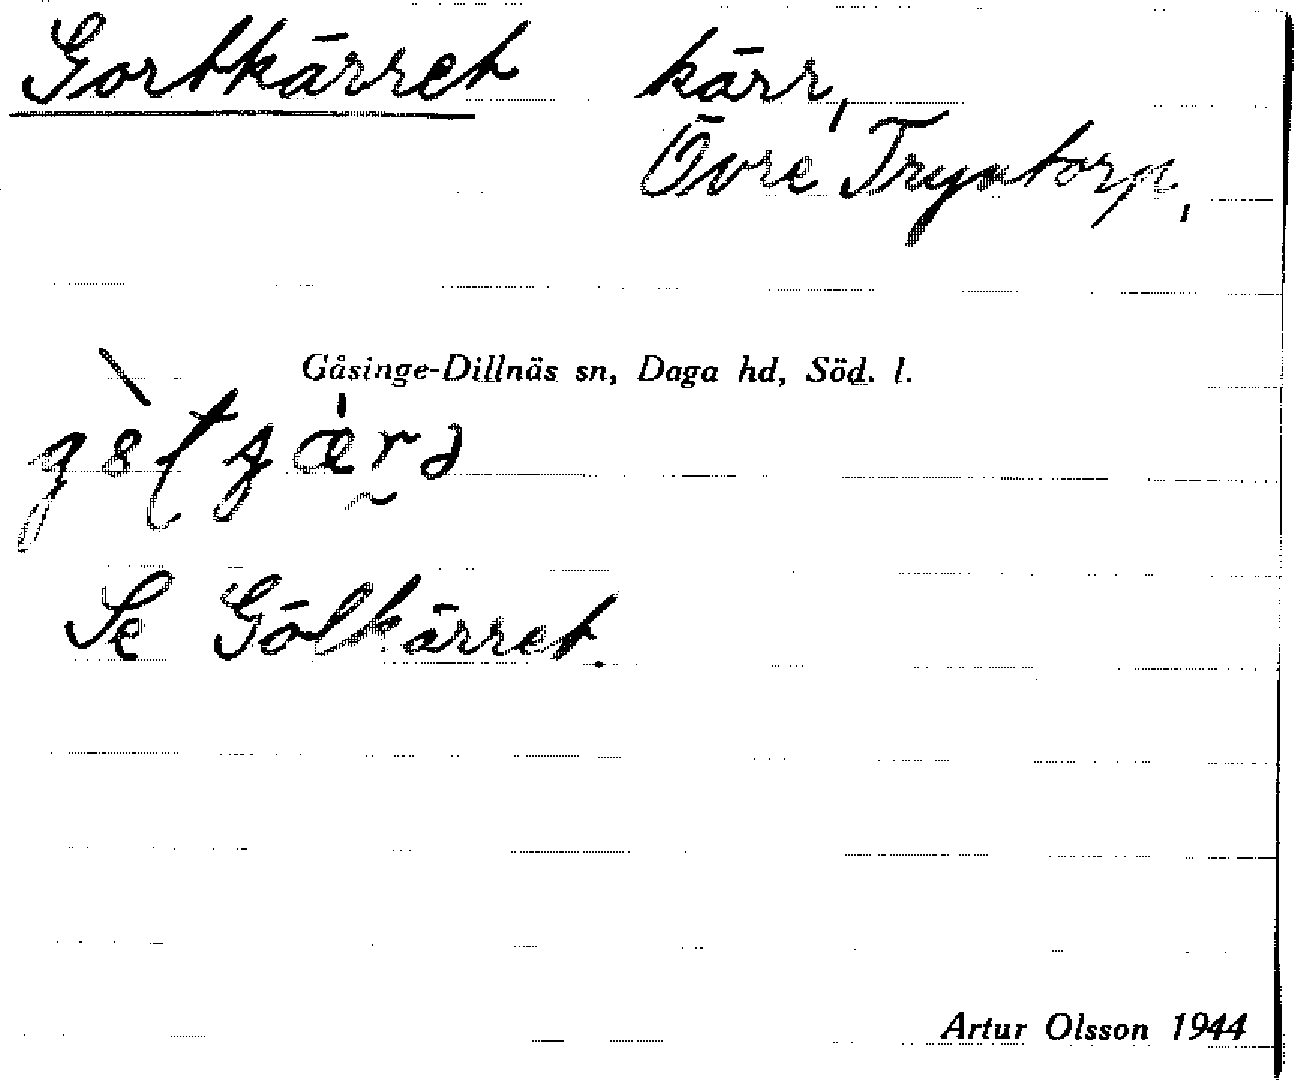 Gortkärret kärr,
Övre Tryntorp,
Gåsinge-Dillnäs sn, Daga hd, Söd. l.
Se Gölkärret.
Artur Olsson 1944